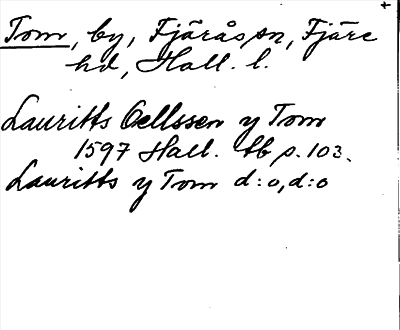 Tom, by, Fjärås sn, Fjäre
hd, Hall. l.
Lauritts Oellssen y Tom
1597 Hall. tb p. 103.
Lauritts y Tom d:o, d:o